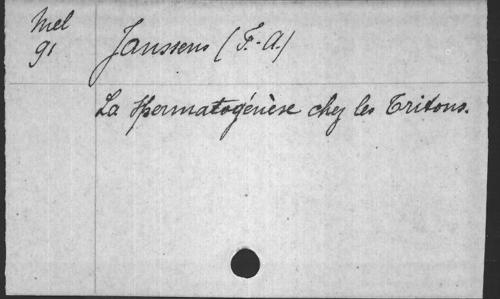 Mel
91
Janssens (F.-A.)
La Spermatogénèse chez les Tritons.